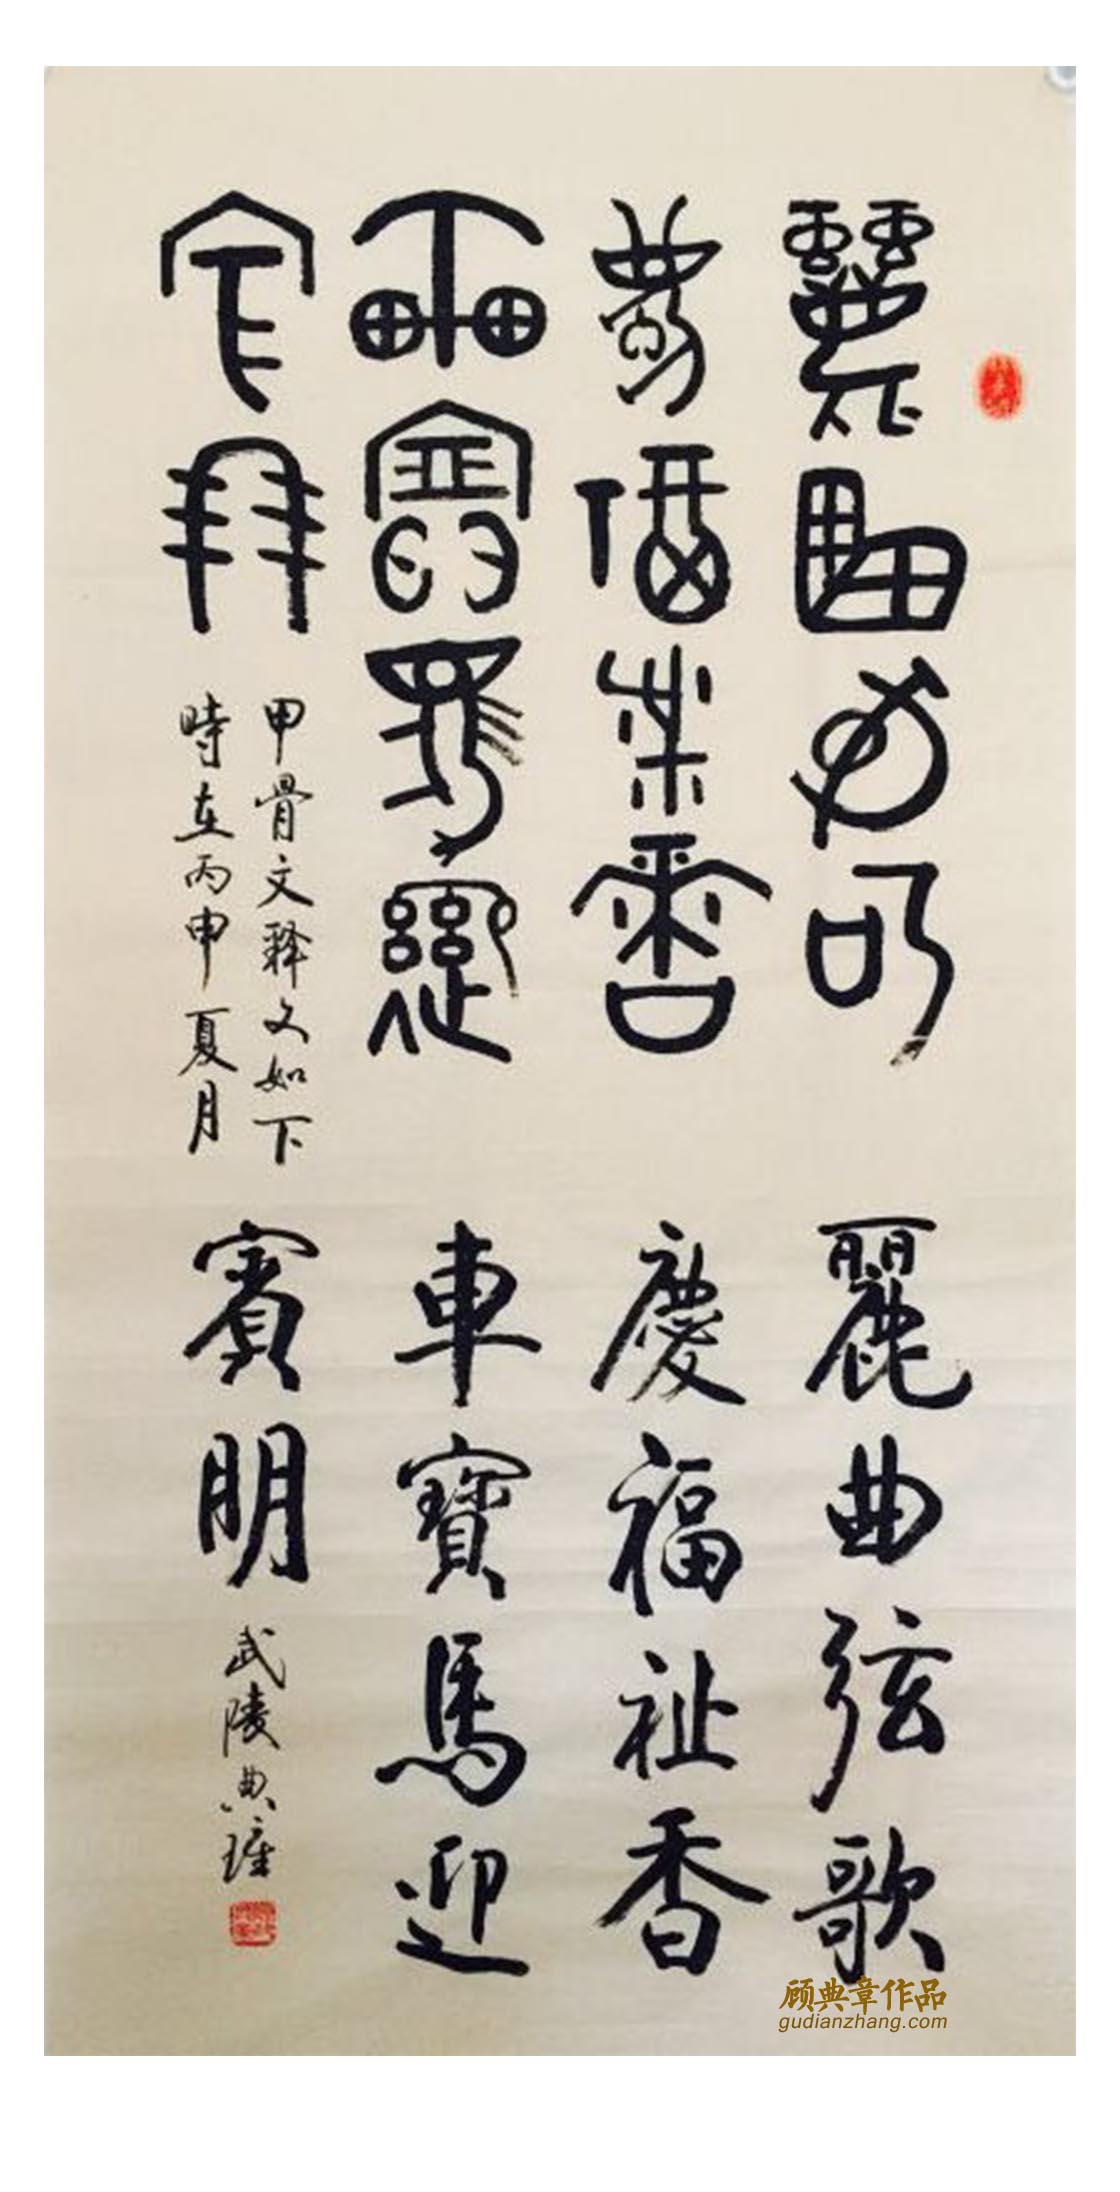 麗曲弦歌
慶福祉香
車寶馬迎
賓朋
甲骨文释文如下
時在丙申夏月
麗曲弦歌
慶福祉香
車寶馬迎
賓朋
武陵典璋
顾典章作品
gudianzhang.com